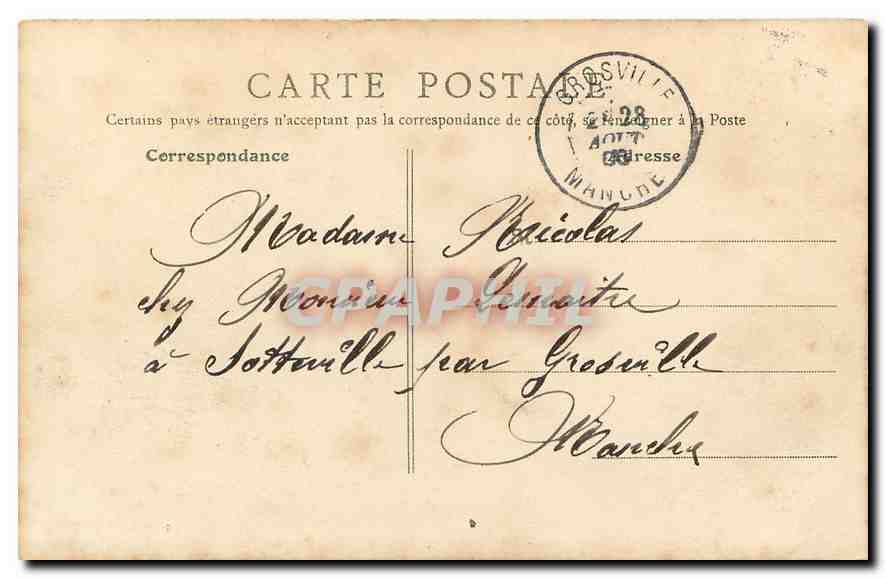 CARTE POSTALE
GROSVILLE
28
AOUT
MANCHE
Certains pays étrangers n'acceptant pas la correspondance de ce côté, se renseigner à la Poste
Correspondance
Adresse
Madame Nicolas
chez Monsieur Lemaitre
CPAPHIL
à Sotteville par Grosville
Manche